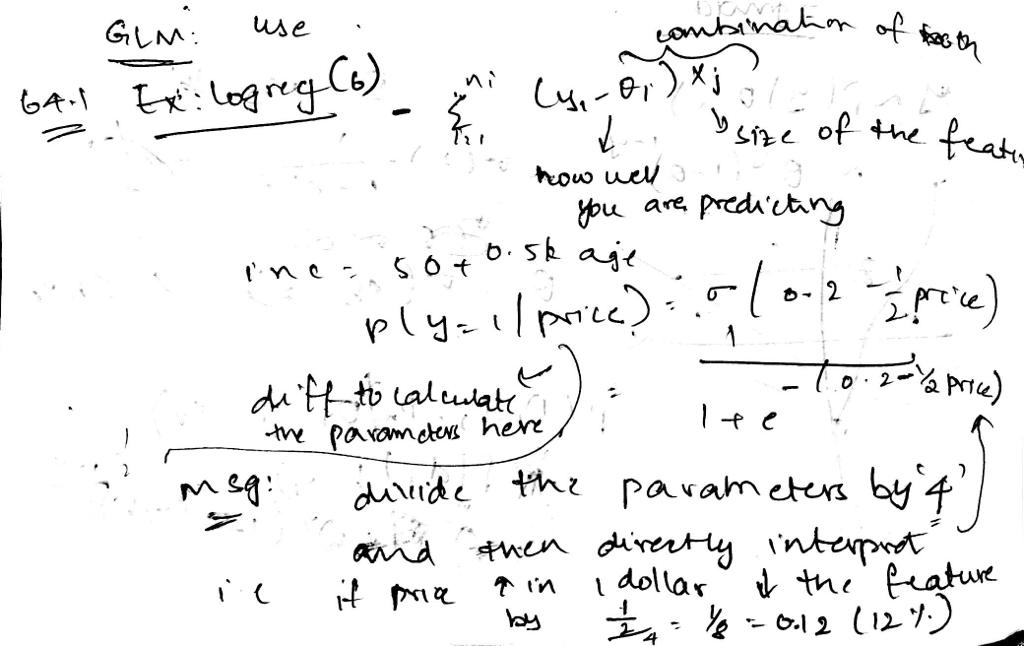 GLM: use
64.1 Ex: logreg (6) - Σ i=1 ni (yi - θi) xj
combination of both
↓ how well you are predicting
↳ size of the featur
inc = 50 + 0.5k age
p(y=1|price) = σ(0.2 - 1/2 price)
= 1 / 1 + e -(0.2 - 1/2 price)
diff to calculate
the parameters here
msg: divide the parameters by '4'
and then directly interpret
i e if price ↑ in 1 dollar ↓ the feature
by 1/2/4 = 1/8 = 0.12 (12%)